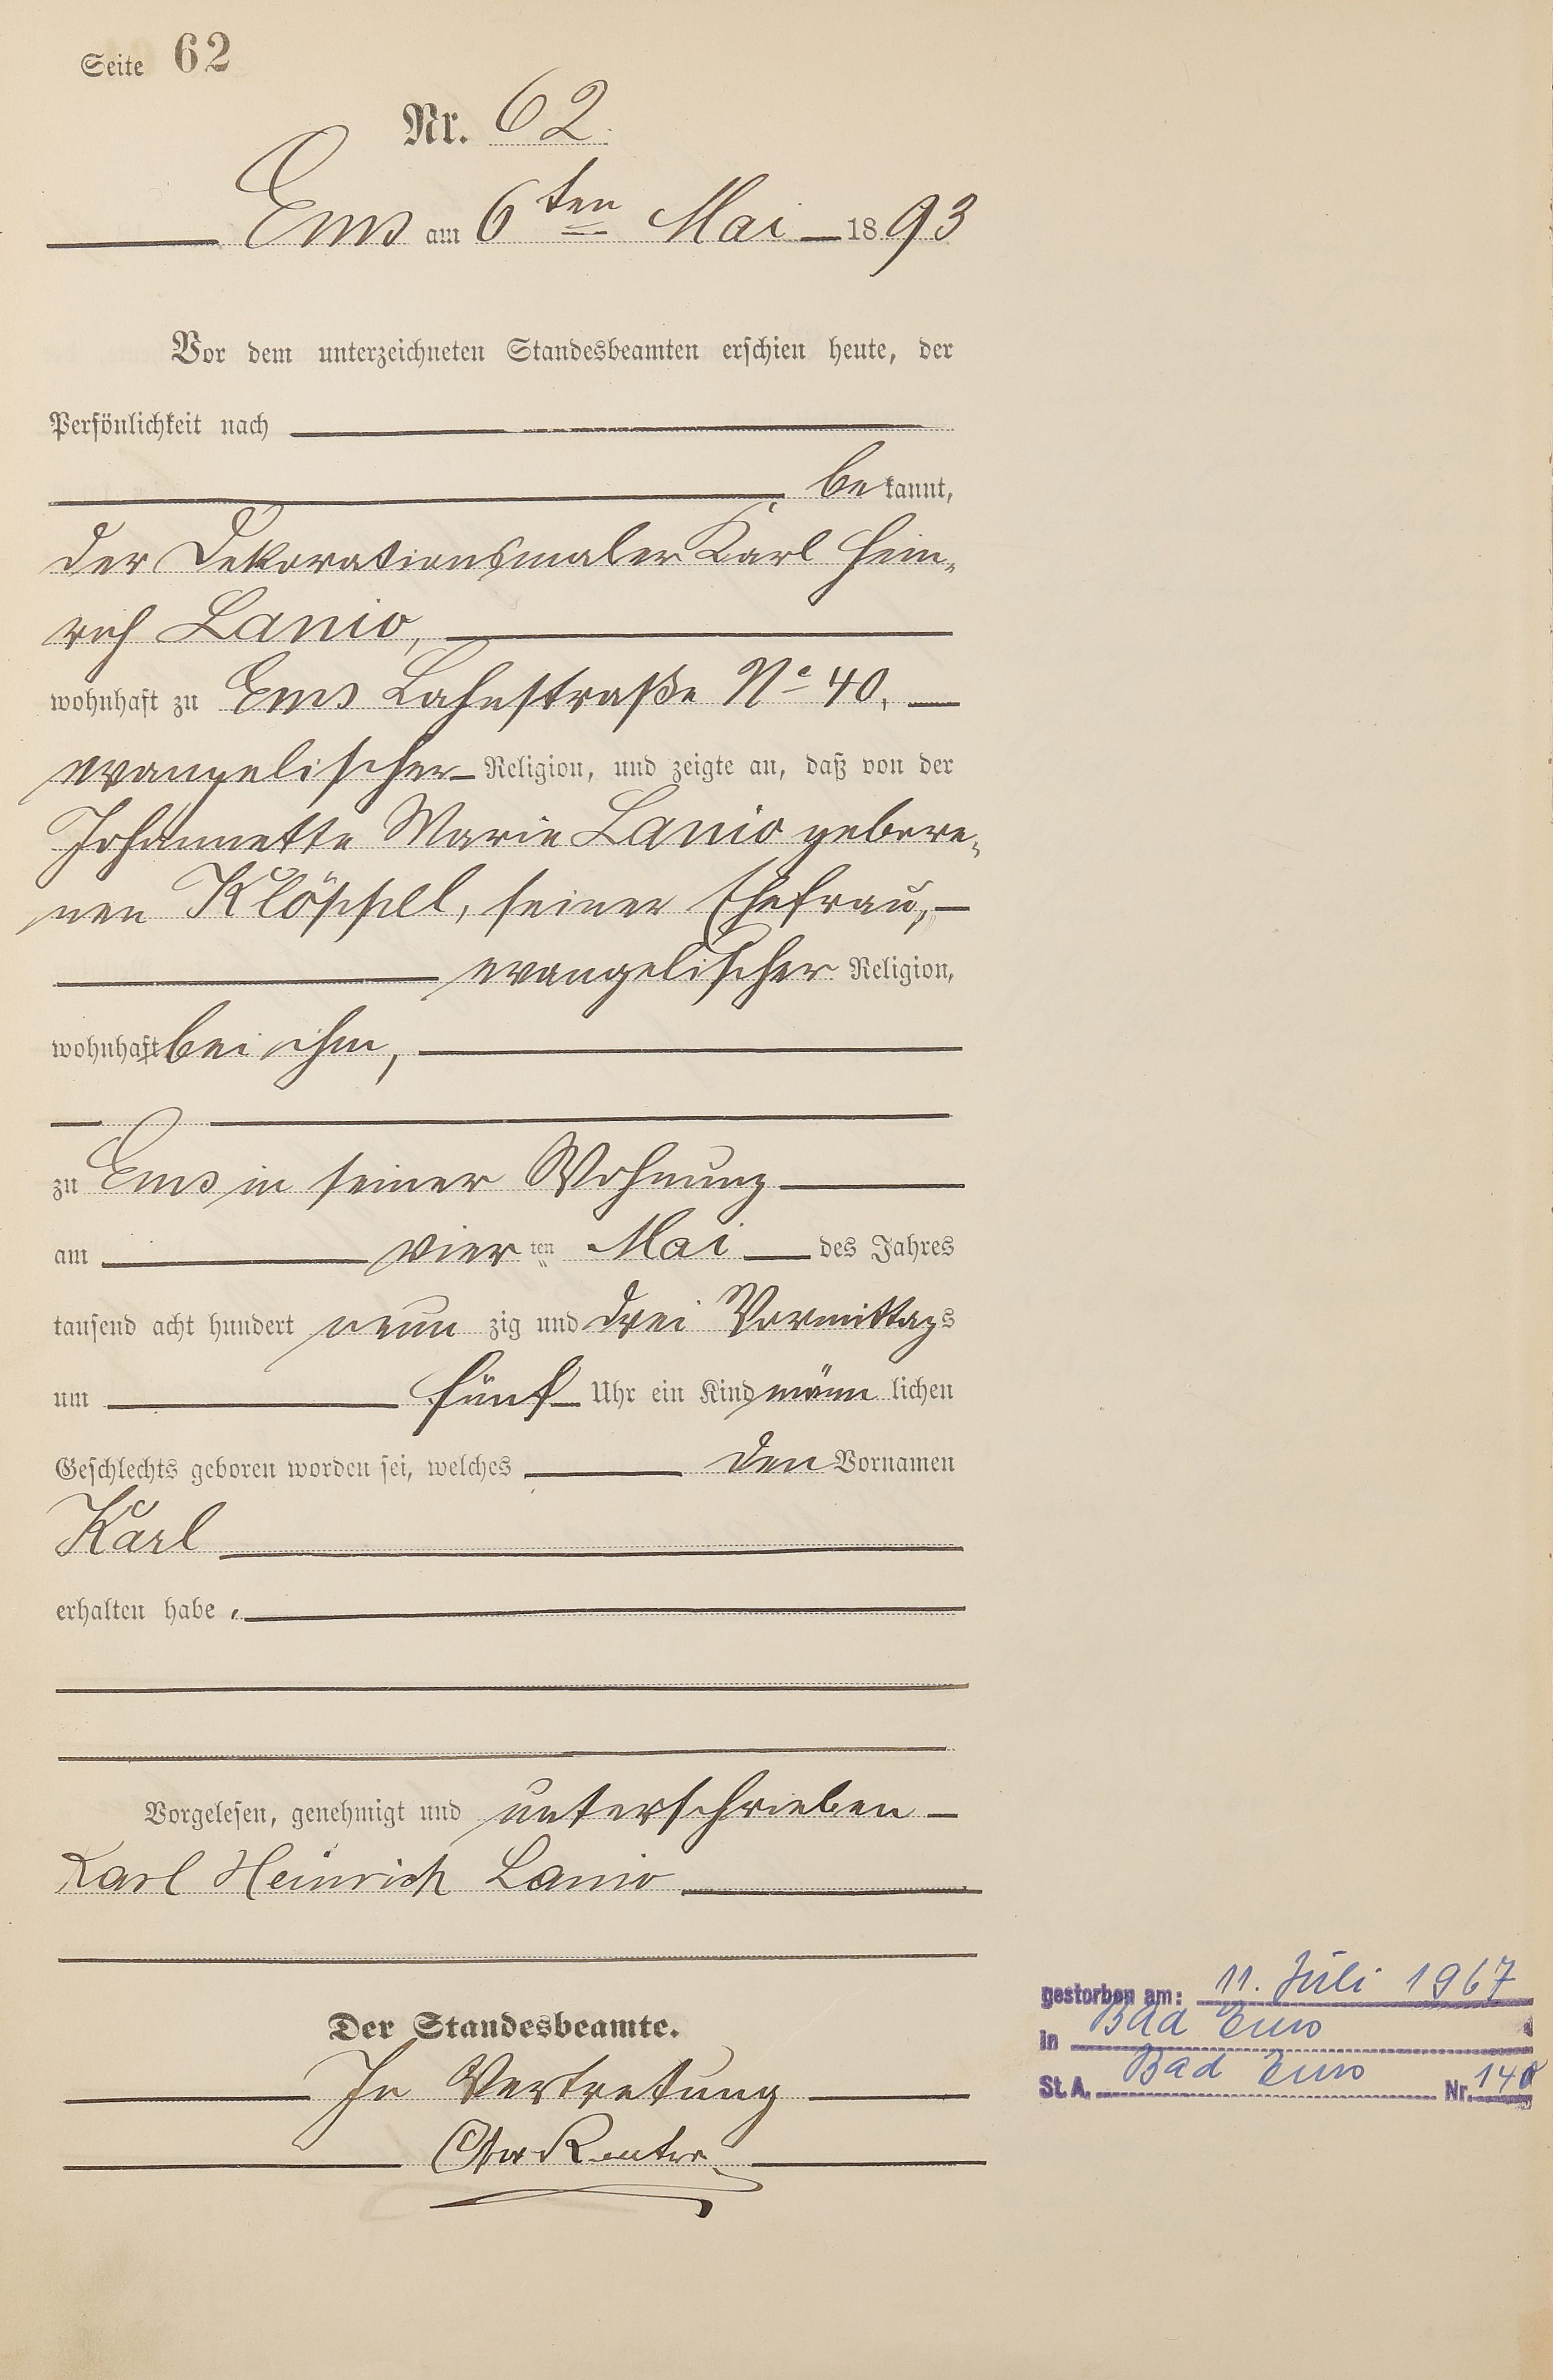 Seite 62
Nr. 62.
Ems am 6ten Mai 1893
Vor dem unterzeichneten Standesbeamten erschien heute, der
Persönlichkeit nach
bekannt,
der Dekorationsmaler Karl Hein-
rich Lanio,
wohnhaft zu Ems Lahnstraße No 40,
evangelischer Religion, und zeigte an, daß von der
Johannette Marie Lanio gebore-
nen Klöppel, seiner Ehefrau,
evangelischer Religion,
wohnhaft bei ihm,
zu Ems in seiner Wohnung
am vierten Mai des Jahres
tausend acht hundert neunzig und drei Vormittags
um fünf Uhr ein Kind männlichen
Geschlechts geboren worden sei, welches den Vornamen
Karl
erhalten habe.
Vorgelesen, genehmigt und unterschrieben
Karl Heinrich Lanio
Der Standesbeamte.
In Vertretung
gestorben am: 11. Juli 1967
in Bad Ems
St. A. Bad Ems Nr. 140